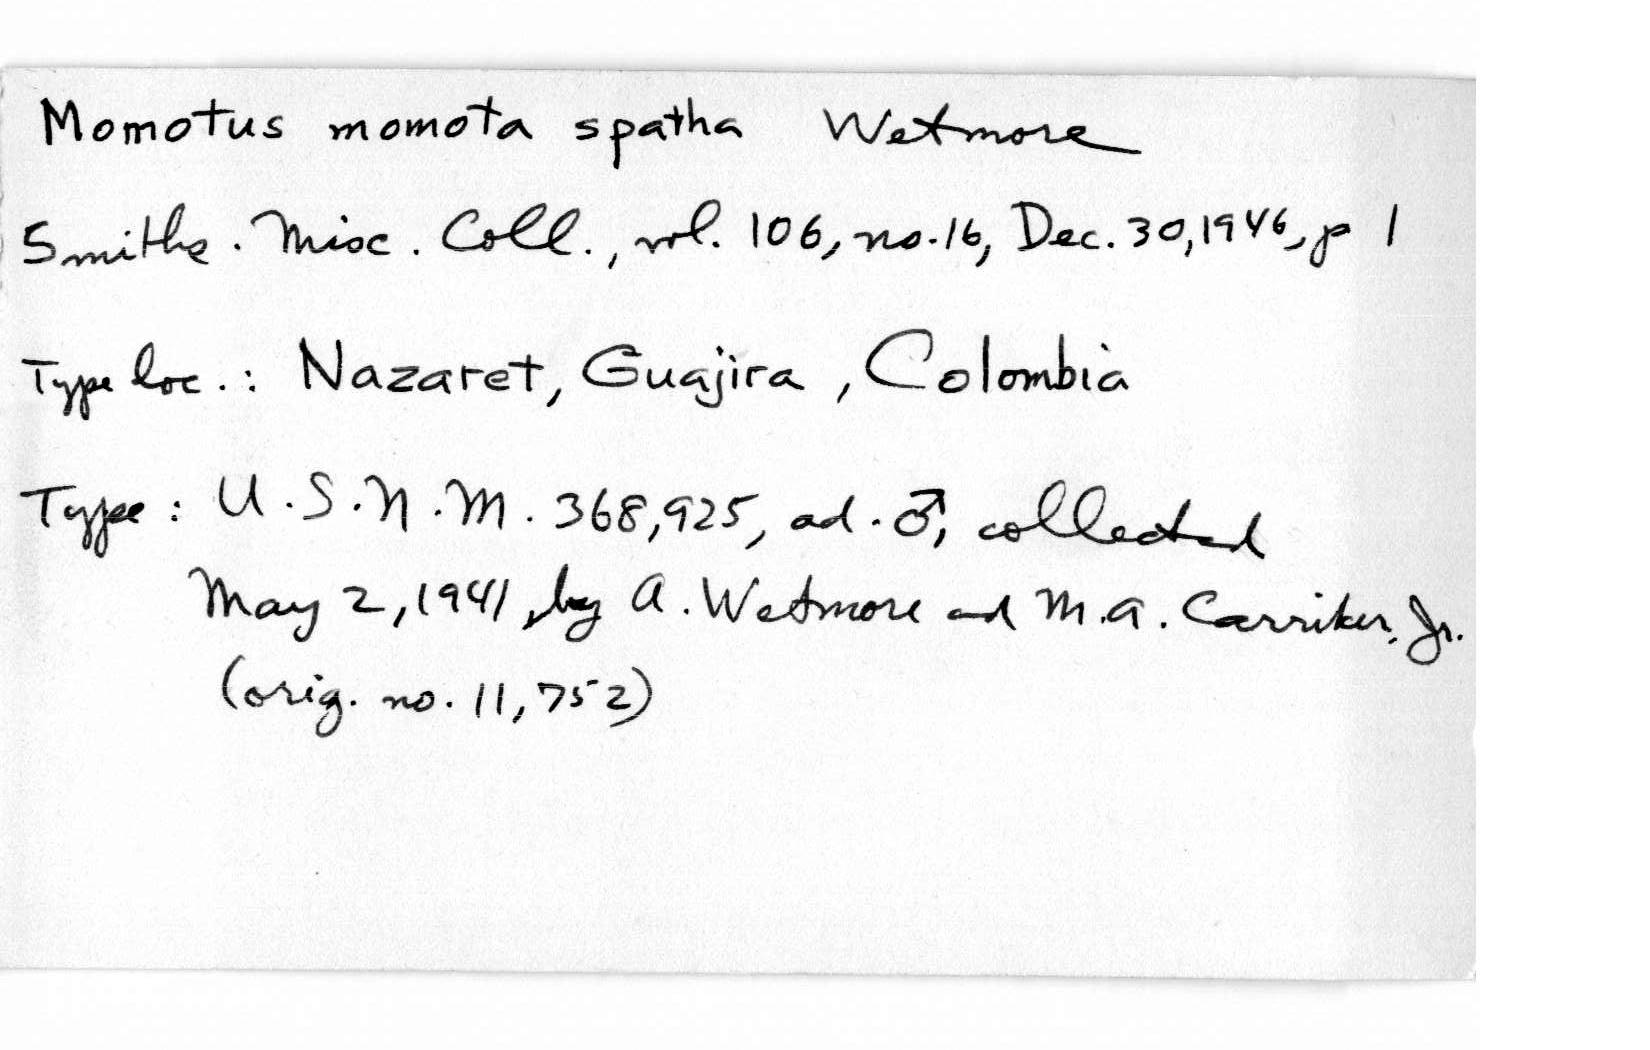 Momotus momota spatha Wetmore
Smiths. Misc. Coll., vol. 106, no. 16, Dec. 30, 1946, p 1
Type loc.: Nazaret, Guajira, Colombia
Type: U.S.N.M. 368,925, ad. ♂, collected
May 2, 1941, by A. Wetmore and M.A. Carriker, Jr.
(orig. no. 11,752)